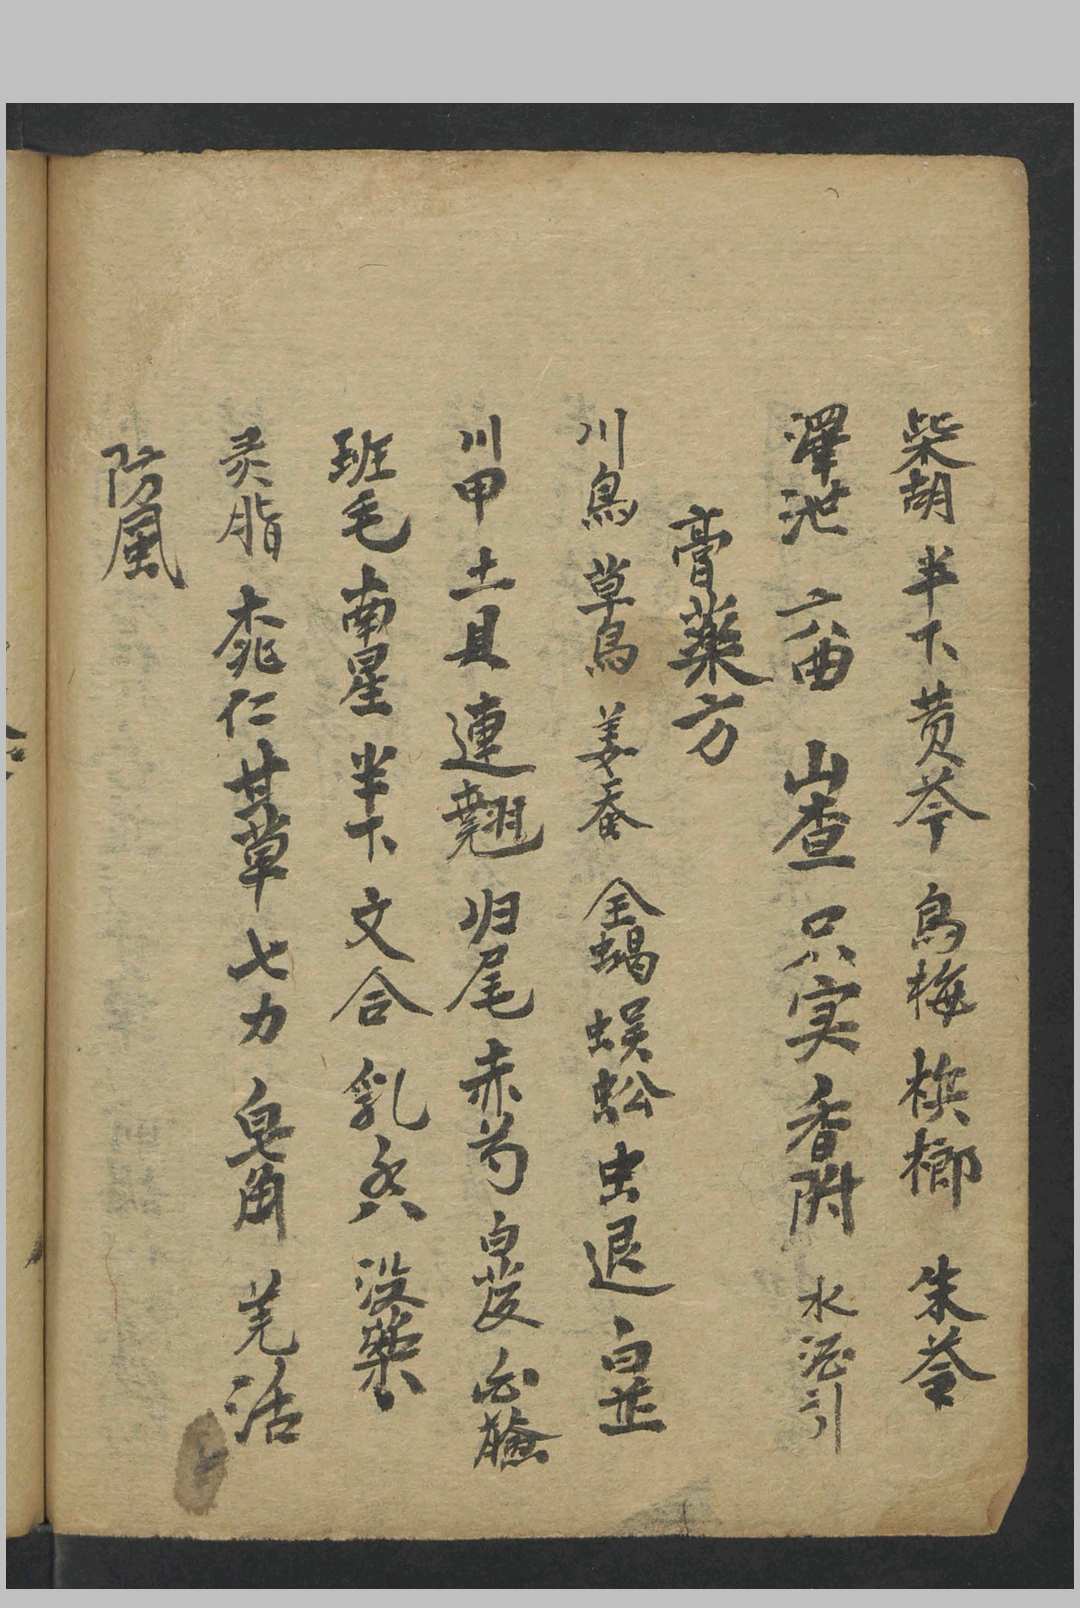 柴胡 半下 黄芩 烏梅 梹榔 朱苓
澤泄 六曲 山查 只实 香附 水酒引
膏藥方
川烏 草烏 姜蚕 全蝎 蜈蚣 虫退 白芷
川甲 土貝 連翹 归尾 赤芍 白芨 白蘞
班毛 南星 半下 文合 乳香 没藥
灵脂 桃仁 甘草 七力 皂角 羌活
防風